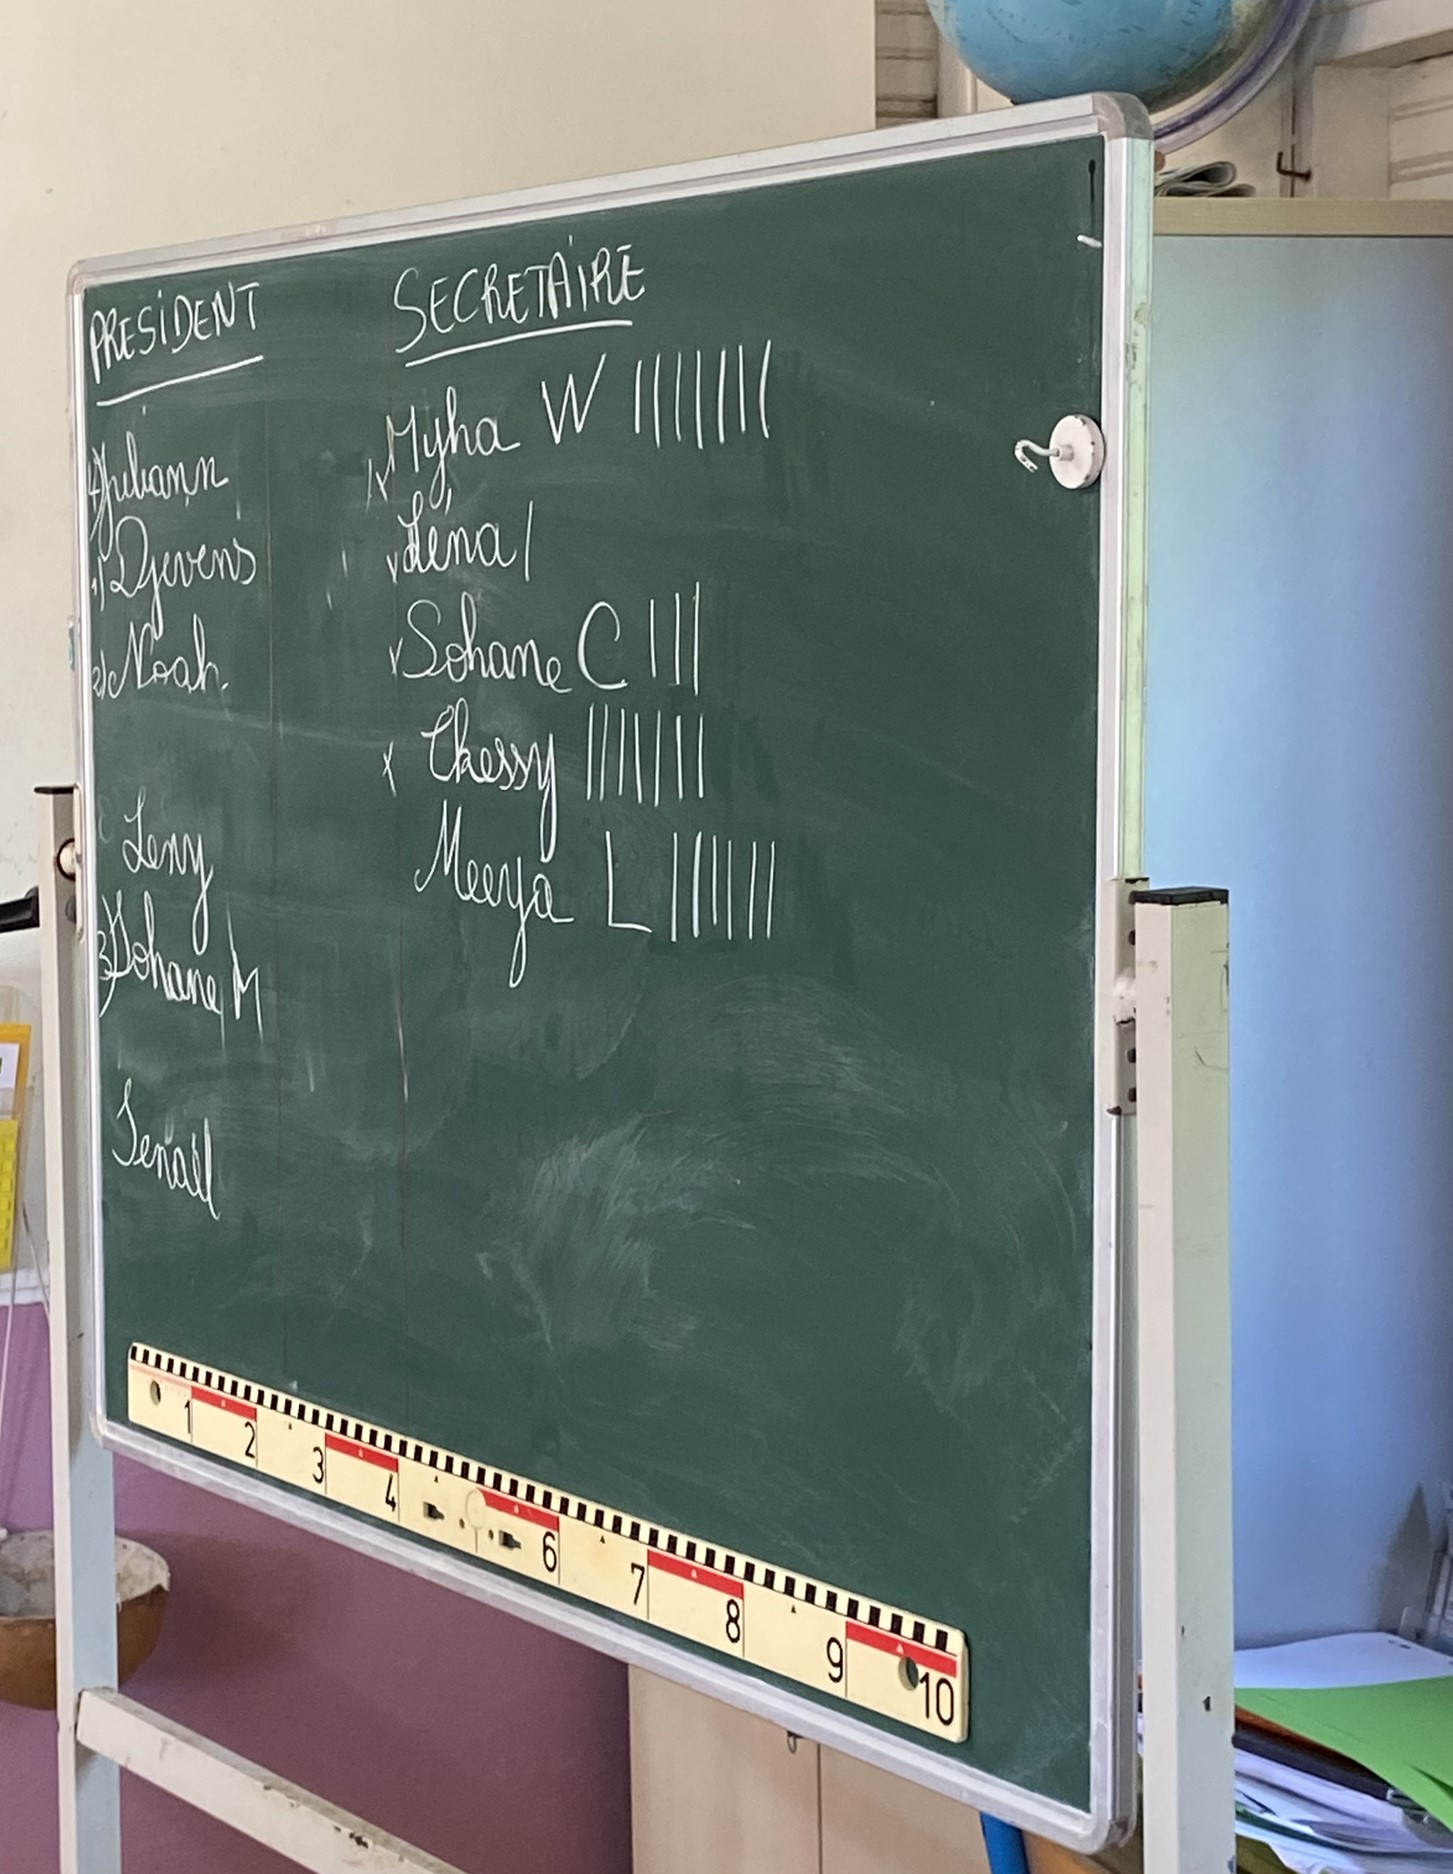 PRESIDENT
4) Juliann
1) Djevens
2) Noah
Leny
3) Sohane M
Tenaël
SECRETAIRE
x Myha W |||||||
x Léna |
x Sohane C |||
x Chessy |||||||
Meeya L ||||||
1 2 3 4 6 7 8 9 10